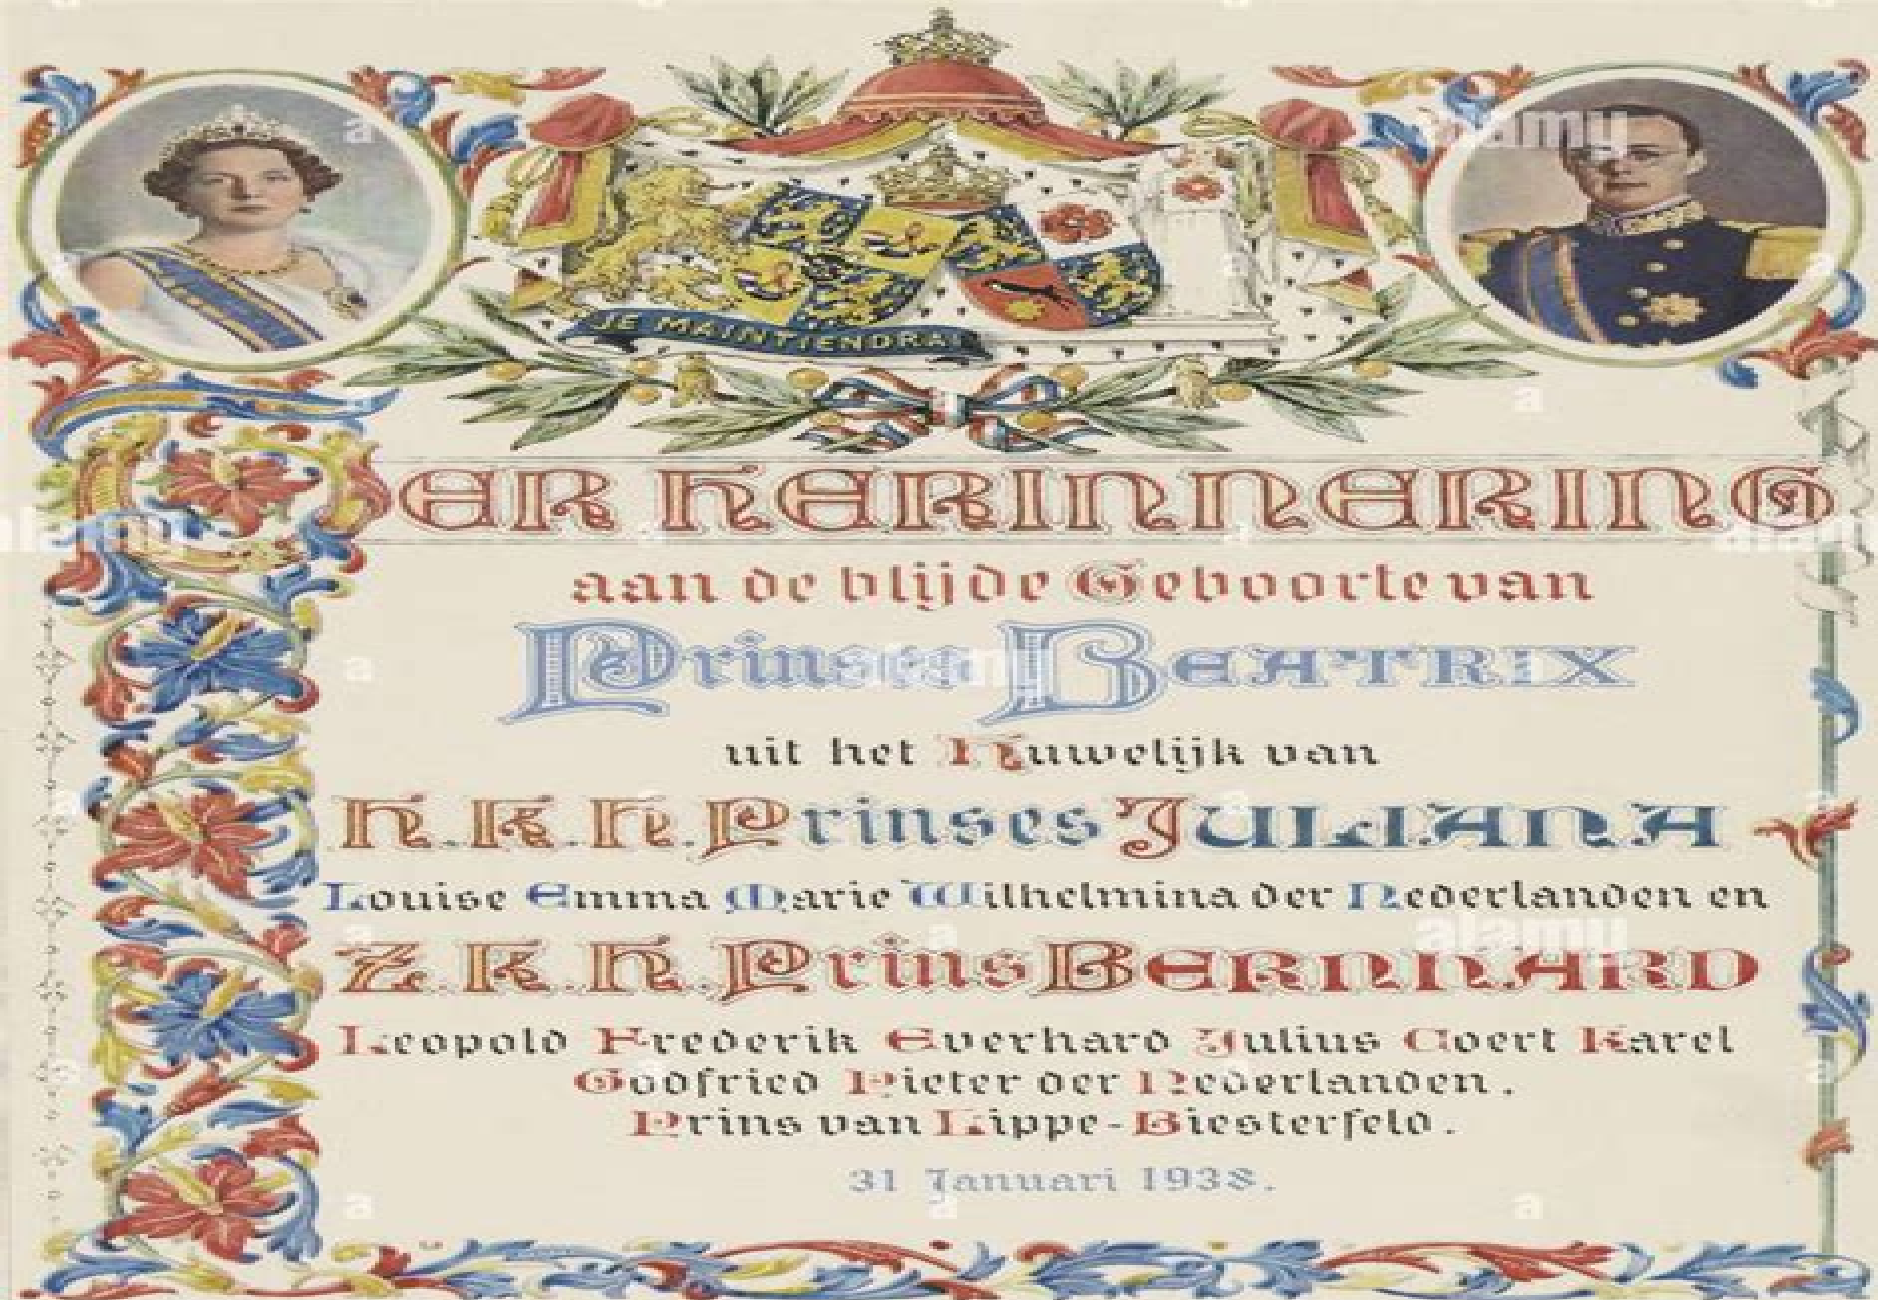 JE MAINTIENDRAI
TER HERINNERING
aan de blijde Geboorte van
Prinses BEATRIX
uit het Huwelijk van
H.K.H. Prinses JULIANA
Louise Emma Marie Wilhelmina der Nederlanden en
Z.K.H. Prins BERNHARD
Leopold Frederik Everhard Julius Coert Karel
Godfried Pieter der Nederlanden.
Prins van Lippe-Biesterfeld.
31 Januari 1938.
alamy